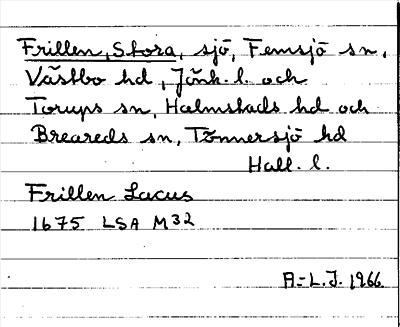 Frillen, Stora, sjö, Femsjö sn,
Västbo hd, Jönk. l. och
Torups sn, Halmstads hd och
Breareds sn, Tönnersjö hd
Hall. l.
Frillen Lacus
1675 LSA M32
A-L.J. 1966.